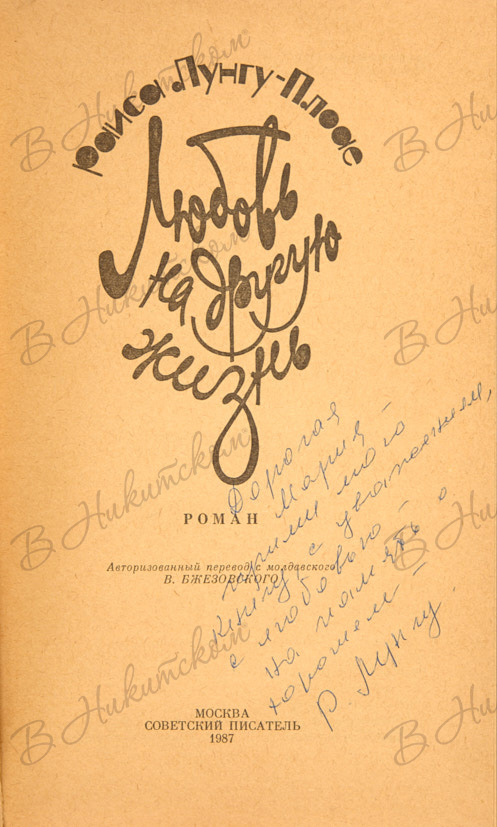 Раиса Лунгу-Плоае
Любовь
на другую
жизнь
РОМАН
Авторизованный перевод с молдавского
В. БЖЕЗОВСКОГО
Дорогая
Мария –
прими мою
книгу с уважением,
с любовью –
на память о
хорошем –
Р. Лунгу.
МОСКВА
СОВЕТСКИЙ ПИСАТЕЛЬ
1987
В Никитском
В Никитском
В Никитском
В Никитском
В Никитском
В Никитском
В Никитском
В Никитском